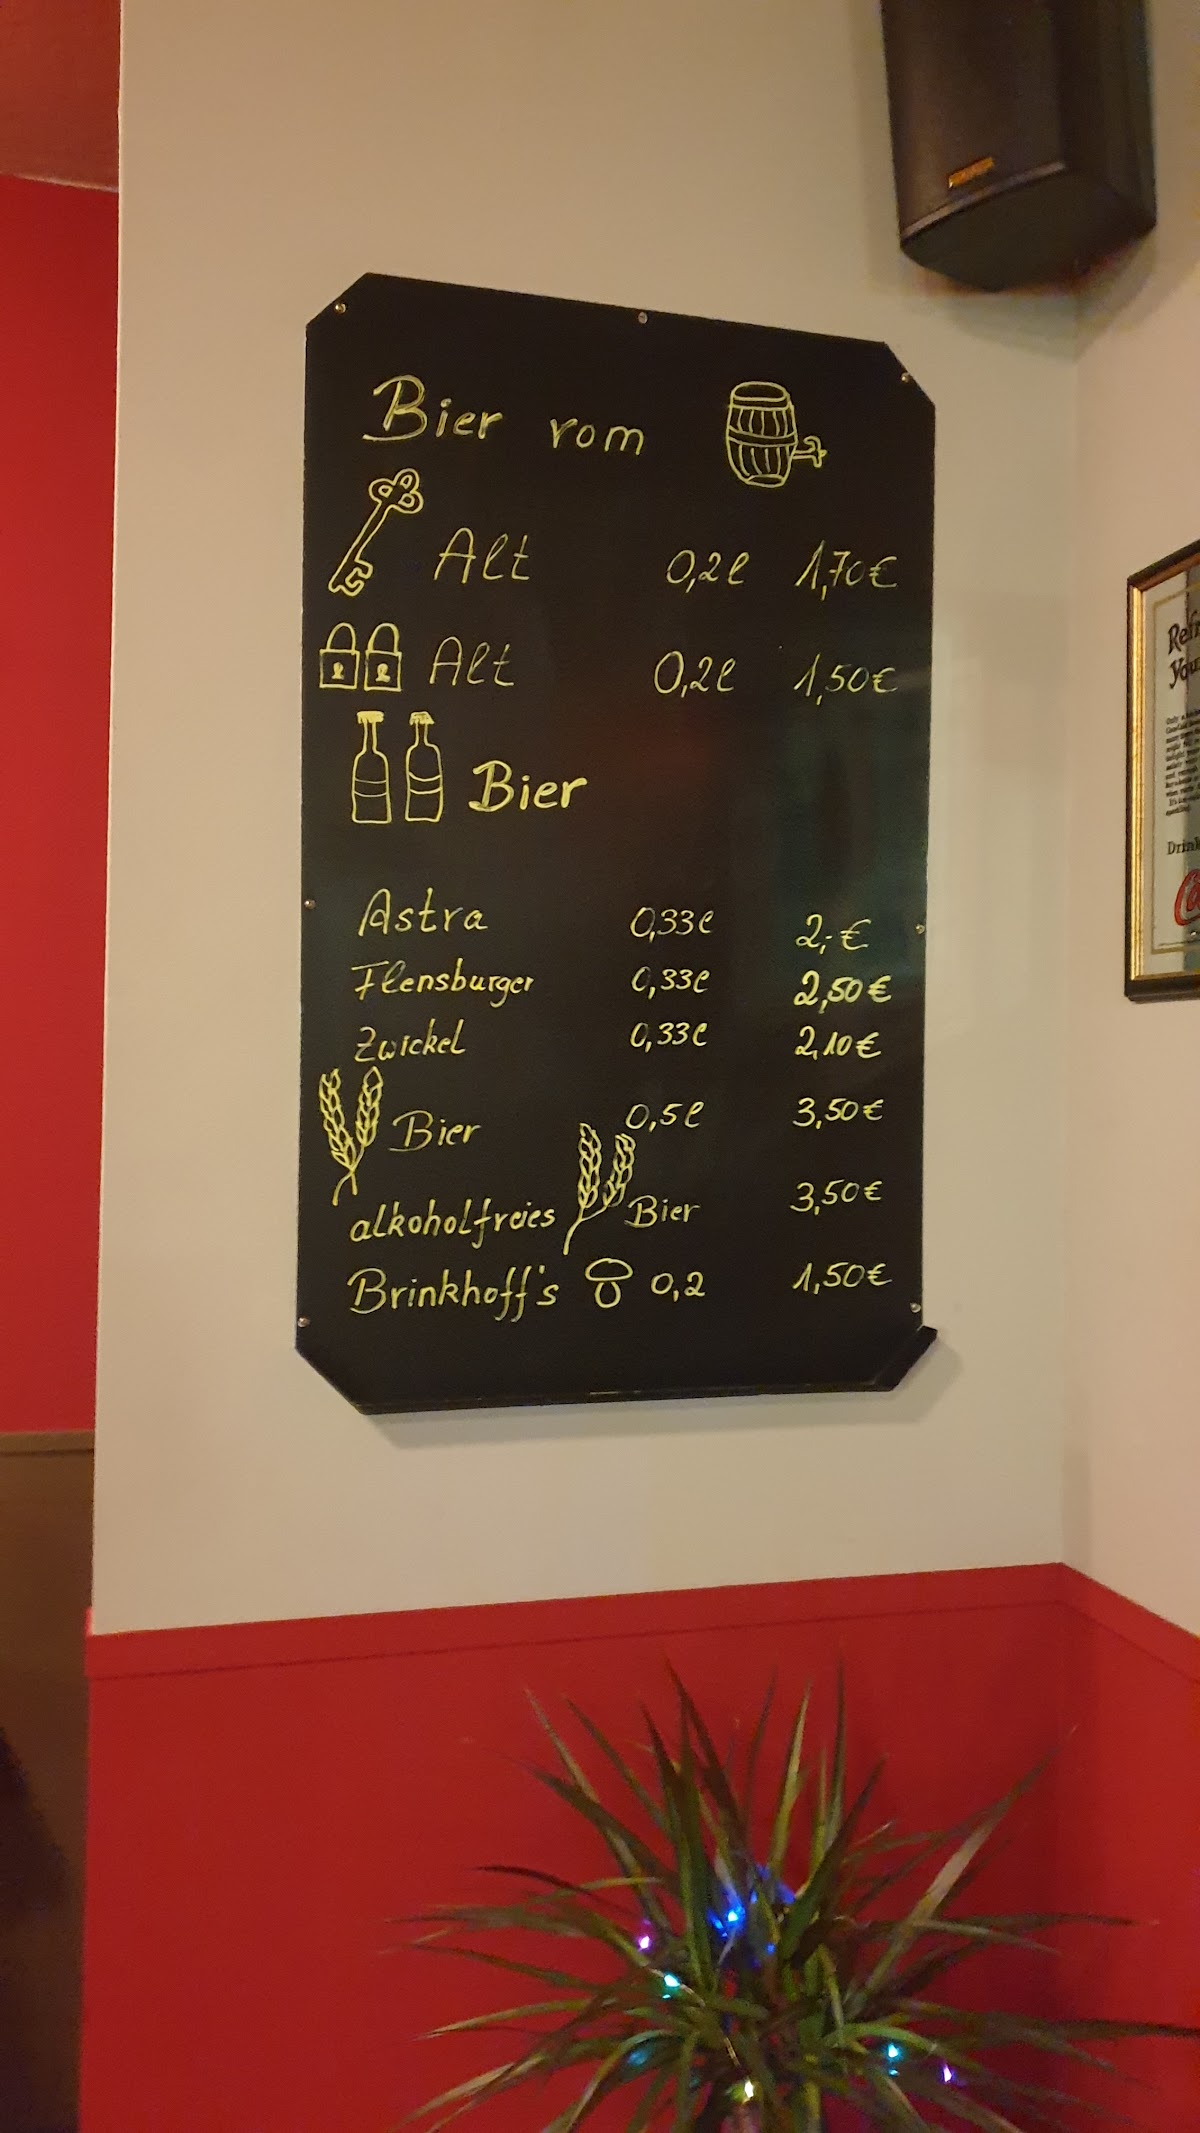 Bier vom
Alt 0,2l 1,70€
Alt 0,2l 1,50€
Bier
Astra 0,33l 2,-€
Flensburger 0,33l 2,50€
Zwickel 0,33l 2,10€
Bier 0,5l 3,50€
alkoholfreies Bier 3,50€
Brinkhoff's 0,2 1,50€
Drink